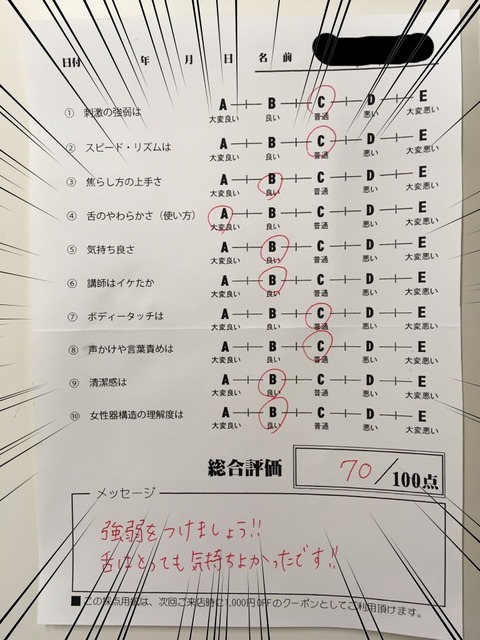 日付 年 月 日 名前
① 刺激の強弱は A 大変良い B 良い C 普通 D 悪い E 大変悪い
② スピード・リズムは A 大変良い B 良い C 普通 D 悪い E 大変悪い
③ 焦らし方の上手さ A 大変良い B 良い C 普通 D 悪い E 大変悪い
④ 舌のやわらかさ（使い方） A 大変良い B 良い C 普通 D 悪い E 大変悪い
⑤ 気持ち良さ A 大変良い B 良い C 普通 D 悪い E 大変悪い
⑥ 講師はイケたか A 大変良い B 良い C 普通 D 悪い E 大変悪い
⑦ ボディータッチは A 大変良い B 良い C 普通 D 悪い E 大変悪い
⑧ 声かけや言葉責めは A 大変良い B 良い C 普通 D 悪い E 大変悪い
⑨ 清潔感は A 大変良い B 良い C 普通 D 悪い E 大変悪い
⑩ 女性器構造の理解度は A 大変良い B 良い C 普通 D 悪い E 大変悪い
総合評価 70/100点
メッセージ
強弱をつけましょう!!
舌はとっても気持ちよかったです!!
■この採点用紙は、次回ご来店時に1,000円OFFのクーポンとしてご利用頂けます。